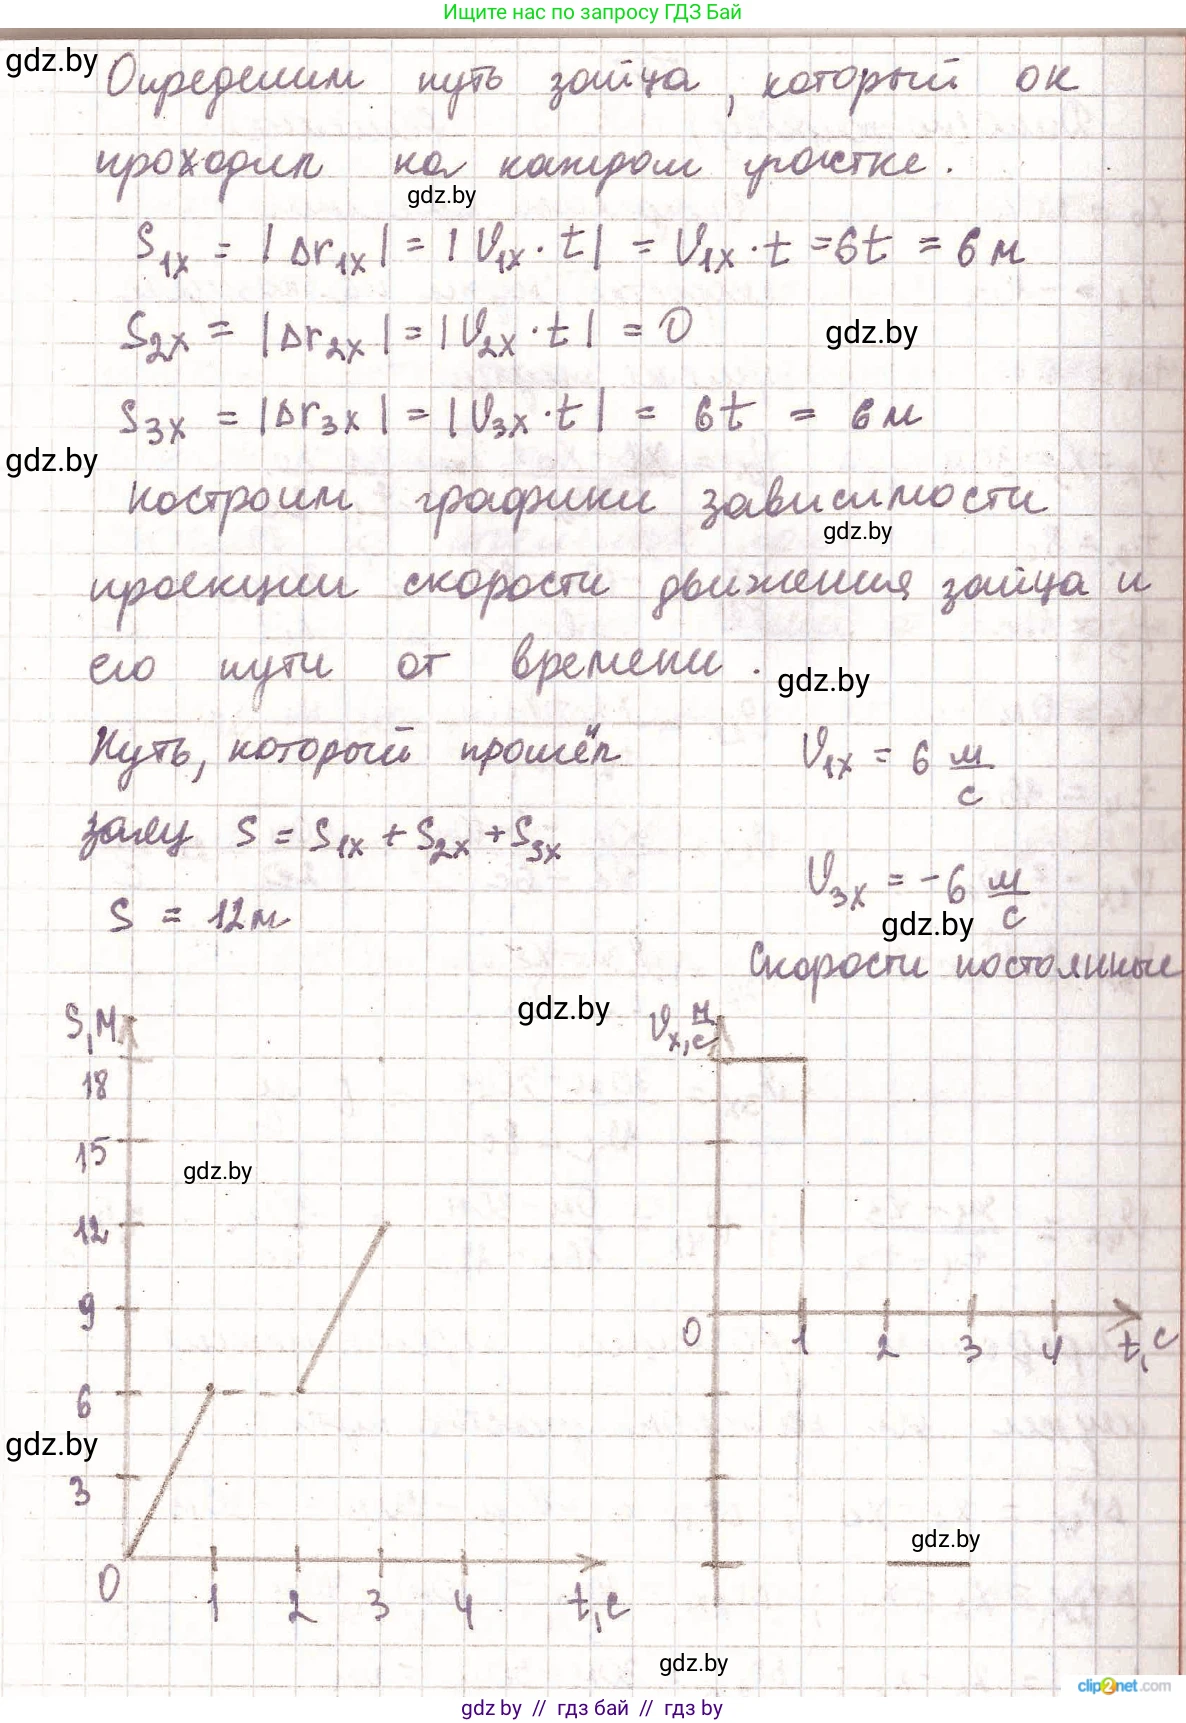 Ищите нас по запросу ГДЗ Бай
gdz.by
Определим путь зайца, который он
проходил на каждом участке.
gdz.by
S₁ₓ = |Δr₁ₓ| = |V₁ₓ · t| = V₁ₓ · t = 6t = 6 м
S₂ₓ = |Δr₂ₓ| = |V₂ₓ · t| = 0
gdz.by
S₃ₓ = |Δr₃ₓ| = |V₃ₓ · t| = 6t = 6 м
gdz.by
Построим графики зависимости
gdz.by
проекции скорости движения зайца и
его пути от времени.
gdz.by
Путь, который прошёл
V₁ₓ = 6 м/с
заяц S = S₁ₓ + S₂ₓ + S₃ₓ
V₃ₓ = -6 м/с
S = 12 м
gdz.by
Скорости постоянные
gdz.by
S, м
Vₓ, м/с
18
15
gdz.by
12
9
0 1 2 3 4 t, с
6
gdz.by
3
gdz.by
0 1 2 3 4 t, с
gdz.by
clip2net.com
gdz.by // гдз бай // гдз by